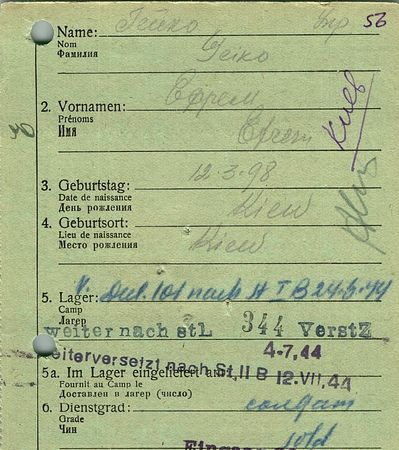 Name: Гейко 56
Nom
Фамилия Geiko
Киев
2. Vornamen: Ефрем
Prénoms
Имя Efrem
12.3.98
3. Geburtstag:
Date de naissance
День рождения Kiew
4. Geburtsort:
Lieu de naissance Kiew
Место рождения
5. Lager: 101 nach
Camp
Лагерь
weiter nach stL 344 VerstZ
4-7.44
weiterversetzt nach St. II B 12.VII.44
5a. Im Lager eingeliefert am:
Fournit au Camp le
Доставлен в лагерь (число)
6. Dienstgrad: солдат
Grade
Чин sold